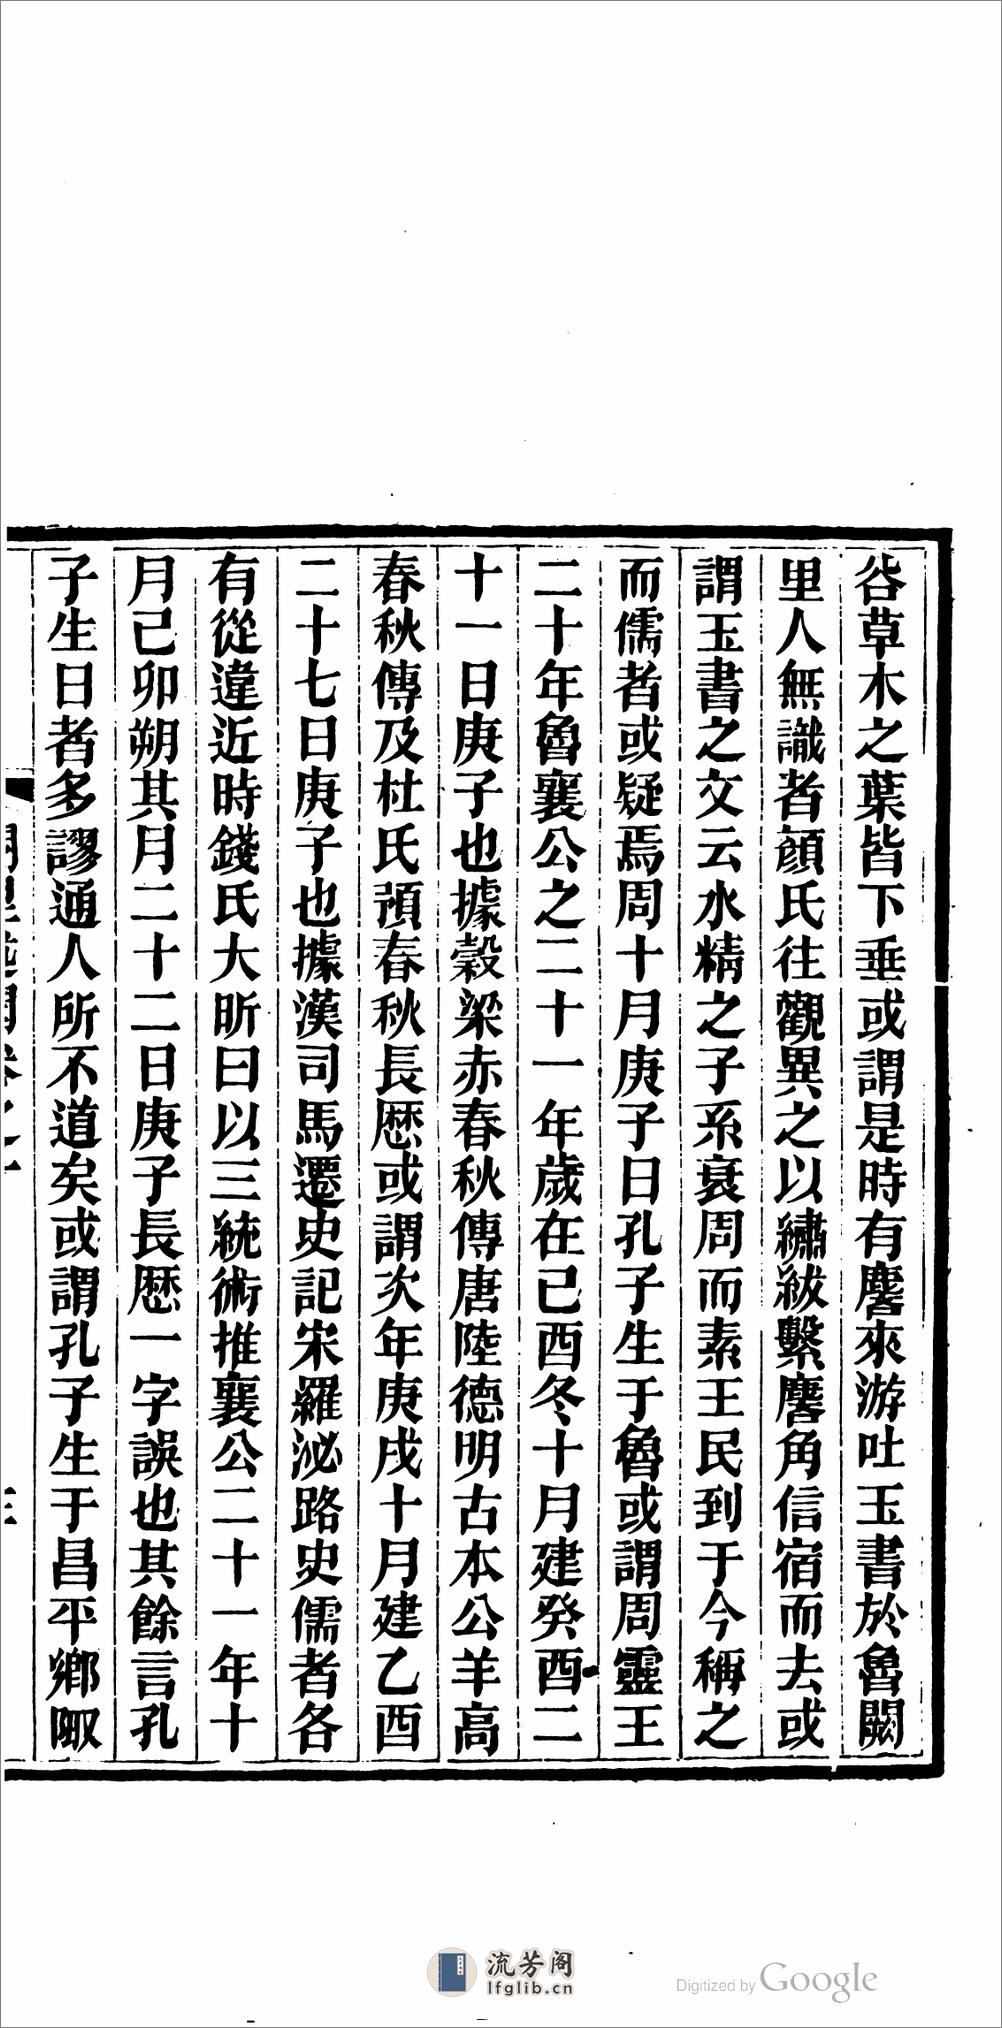 谷草木之葉皆下垂或謂是時有麐來游吐玉書於魯闕
里人無識者顔氏往觀異之以繡紱繫麐角信宿而去或
謂玉書之文云水精之子系衰周而素王民到于今稱之
而儒者或疑焉周十月庚子日孔子生于魯或謂周靈王
二十年魯襄公之二十一年歲在己酉冬十月建癸酉二
十一日庚子也據穀梁赤春秋傳唐陸德明古本公羊高
春秋傳及杜氏預春秋長厯或謂次年庚戌十月建乙酉
二十七日庚子也據漢司馬遷史記宋羅泌路史儒者各
有從違近時錢氏大昕曰以三統術推襄公二十一年十
月己卯朔其月二十二日庚子長厯一字誤也其餘言孔
子生日者多謬通人所不道矣或謂孔子生于昌平鄉陬
卷之一
三
流芳阁
lfglib.cn
Digitized by Google